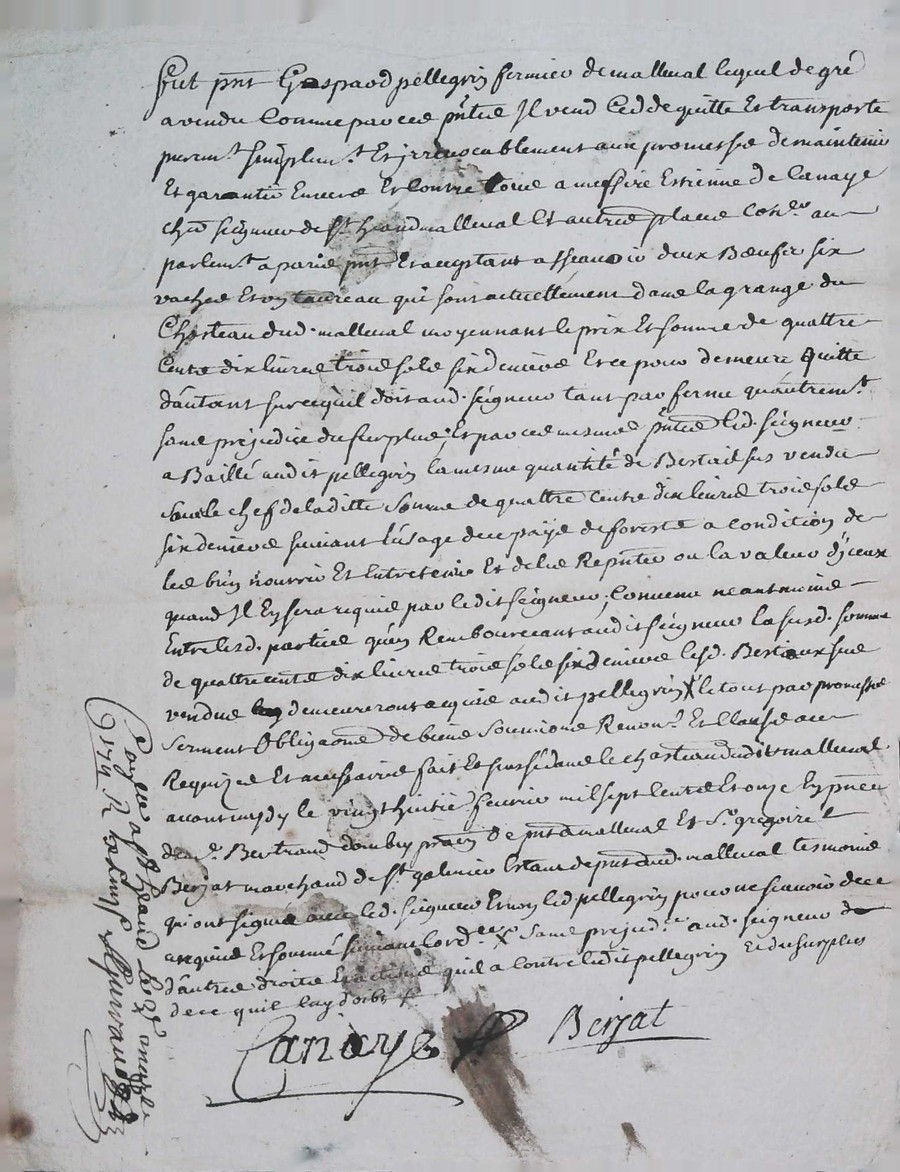 fut pnt Gaspard pellegrin fermier de malleval lequel de gré
a vendu Comme par ces pntes Il vend Cedde quitte Et transporte
puremt simplemt Et irrevocablement aux promesses de maintenir
Et garantir Envers Et Contre tous a messire Estienne de Canaye
cher seigneur de st heand malleval Et autres places Coner au
parlemt a paris pnt Et acceptant assçavoir deux Bœufs six
vaches Et un taureau qui sont actuellement dans la grange du
Chasteau dud. malleval moyennant le prix Et somme de quattre
Cents dix livres trois sols six deniers Et ce pour demeurer quitte
d'autant sur ce quil doit aud. seigneur tant par ferme qu'autremt
sans préjudice du surplus, Et par ces mesmes pntes led. seigneur
a Baillé audit pellegrin la mesme quantité de Bestail sus vendu
sous le chef de laditte somme de quattre Cents dix livres trois sols
six deniers suivant l'usage du païs de forests a condition de
les bien nourrir Et Entretenir Et de les Representer ou la valeur d'iceux
quand Il En sera requis par ledit seigneur, Convenu neantmoins
Entre lesd. parties qu'en Remboursant audit seigneur la susd. somme
de quattre cents dix livres trois sols six deniers lesd. Bestiaux sus
vendus demeureront acquis audit pellegrin X le tout par promesse
serment Obligaons de biens soumions Renonons Et Clauses au
Requizes Et necessaires fait Et passé dans le chasteau dudit malleval
avant mydy le vingt huitie fevrier mil sept Cents Et onze En pnce
de Bertrand de pnt a malleval Et Sr gregoire
Berjat marchand de st galmier Estant de pnt aud. malleval tesmoins
qui ont signé avec led. seigneur Et non led pellegrin pour ne sçavoir de ce
enquis Et sommé suivant lordce X sans prejudce aud. seigneur
d'autres droits Et actions quil a Contre ledit pellegrin Et du surplus
de ce quil luy doibt
Canaye Berjat
a st heand le
1711 R